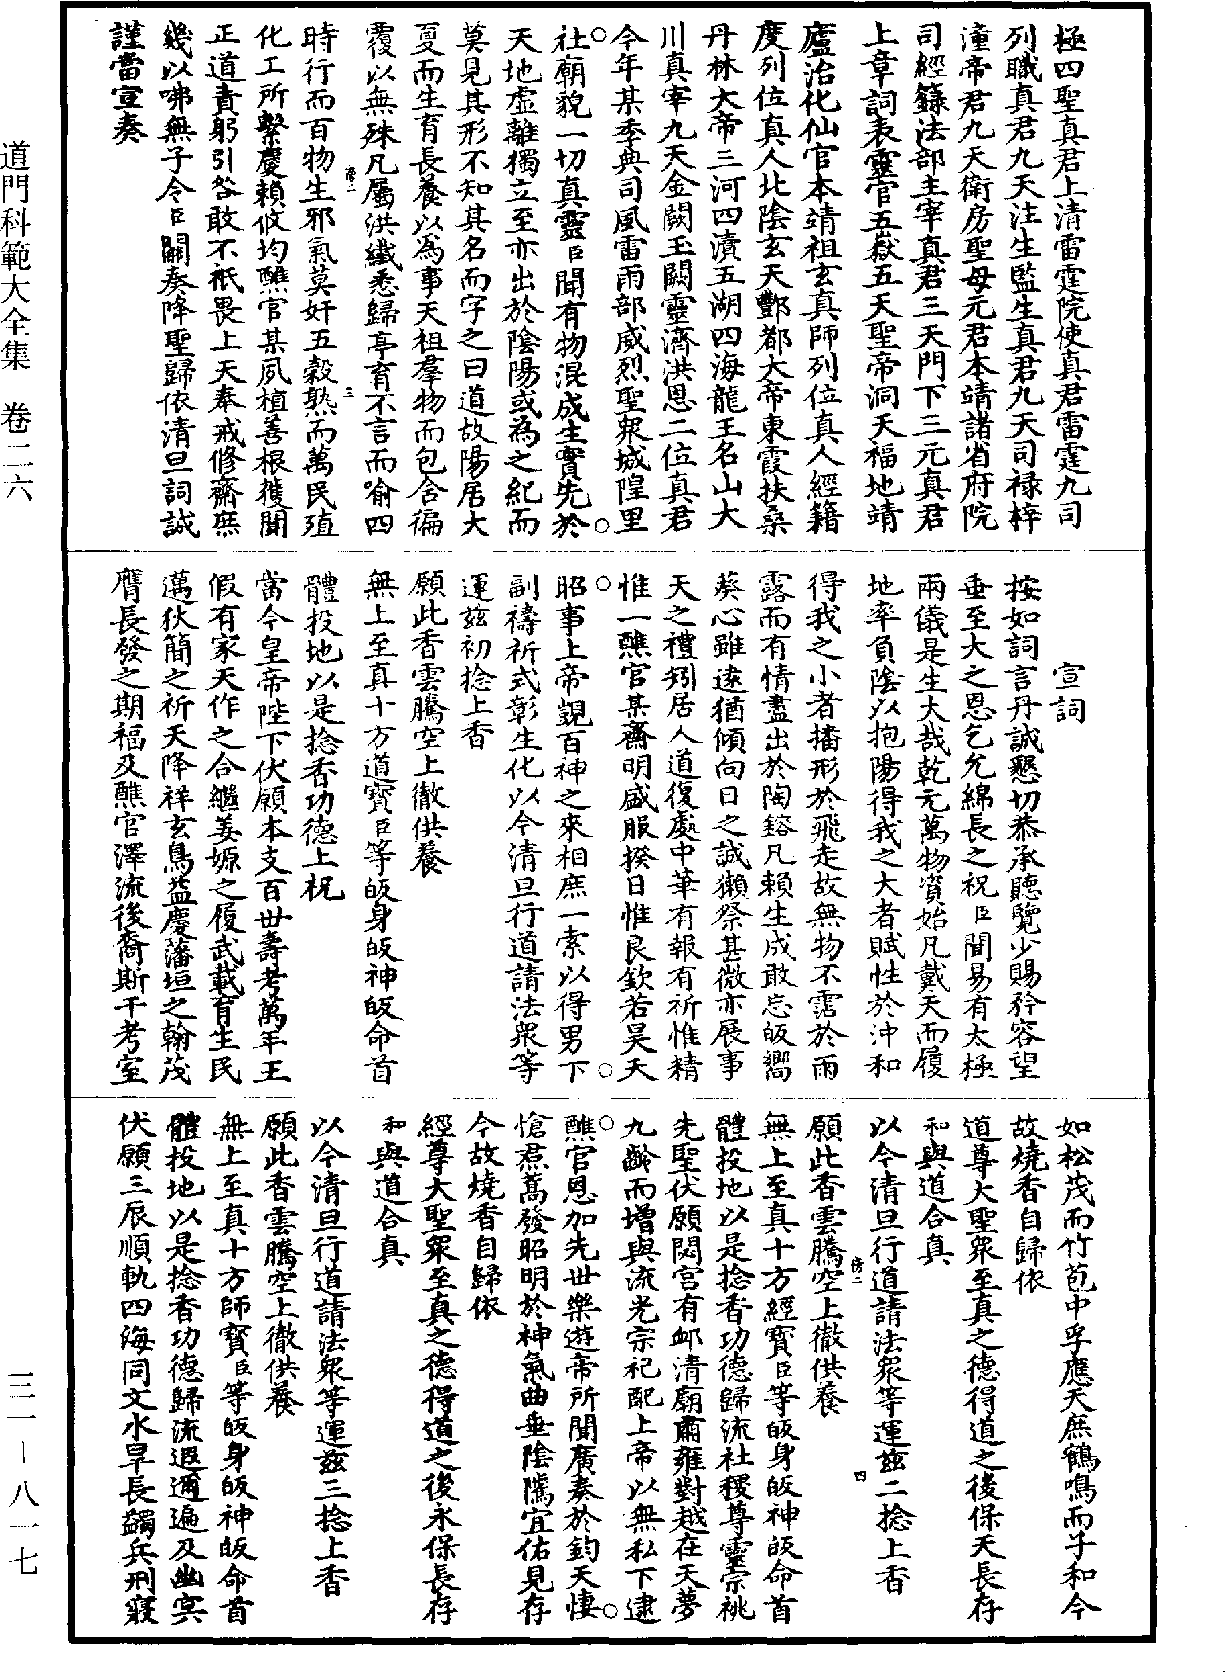 極四聖真君上清雷霆院使真君雷霆九司
列職真君九天注生監生真君九天司祿梓
潼帝君九天衛房聖母元君本靖諸省府院
司經籙法部主宰真君三天門下三元真君
上章詞表靈官五嶽五天聖帝洞天福地靖
廬治化仙官本靖祖玄真師列位真人經籍
度列位真人北陰玄天酆都大帝東霞扶桑
丹林大帝三河四瀆五湖四海龍王名山大
川真宰九天金闕玉闕靈濟洪恩二位真君
今年某季典司風雷雨部威烈聖衆城隍里
社廟貌一切真靈臣聞有物混成生實先於
天地虛離獨立至亦出於陰陽或為之紀而
莫見其形不知其名而字之曰道故陽居大
夏而生育長養以為事天祖羣物而包含徧
覆以無殊凡屬洪纖悉歸亭育不言而喻四
時行而百物生邪氣莫奸五穀熟而萬民殖
化工所繫慶賴攸均醮官某夙植善根獲聞
正道責躬引咎敢不祇畏上天奉戒修齋庶
幾以咈無子今臣關奏降聖歸依清旦詞誠
謹當宣奏
宣詞
按如詞言丹誠懇切恭承聽覽少賜矜容望
垂至大之恩乞允綿長之祝臣聞易有太極
兩儀是生大哉乾元萬物資始凡戴天而履
地率負陰以抱陽得我之大者賦性於沖和
得我之小者播形於飛走故無物不霑於雨
露而有情盡出於陶鎔凡賴生成敢忘皈嚮
葵心雖遠猶傾向日之誠獺祭甚微亦展事
天之禮矧居人道復處中華有報有祈惟精
惟一醮官某齋明盛服揆日惟良欽若昊天
昭事上帝覬百神之來相庶一索以得男下
副禱祈式彰生化以今清旦行道請法衆等
運茲初捻上香
願此香雲騰空上徹供養
無上至真十方道寶臣等皈身皈神皈命首
體投地以是捻香功德上祝
當今皇帝陛下伏願本支百世壽考萬年王
假有家天作之合繼姜嫄之履武載育生民
邁狄簡之祈天降祥玄鳥益慶藩垣之翰茂
膺長發之期福及醮官澤流後裔斯干考室
如松茂而竹苞中孚應天庶鶴鳴而子和今
故燒香自歸依
道尊大聖衆至真之德得道之後保天長存
和與道合真
以今清旦行道請法衆等運茲二捻上香
願此香雲騰空上徹供養
無上至真十方經寶臣等皈身皈神皈命首
體投地以是捻香功德歸流社稷尊靈宗祧
先聖伏願閟宮有卹清廟肅雍對越在天夢
九齡而增與流光宗祀配上帝以無私下逮
醮官恩加先世樂遊帝所聞廣奏於鈞天悽
愴焄蒿發昭明於神氣曲垂陰隲宜佑見存
今故燒香自歸依
經尊大聖衆至真之德得道之後永保長存
和與道合真
以今清旦行道請法衆等運茲三捻上香
願此香雲騰空上徹供養
無上至真十方師寶臣等皈身皈神皈命首
體投地以是捻香功德歸流遐邇遍及幽冥
伏願三辰順軌四海同文水旱長蠲兵刑寢
道門科範大全集　卷二六
三一－八一七